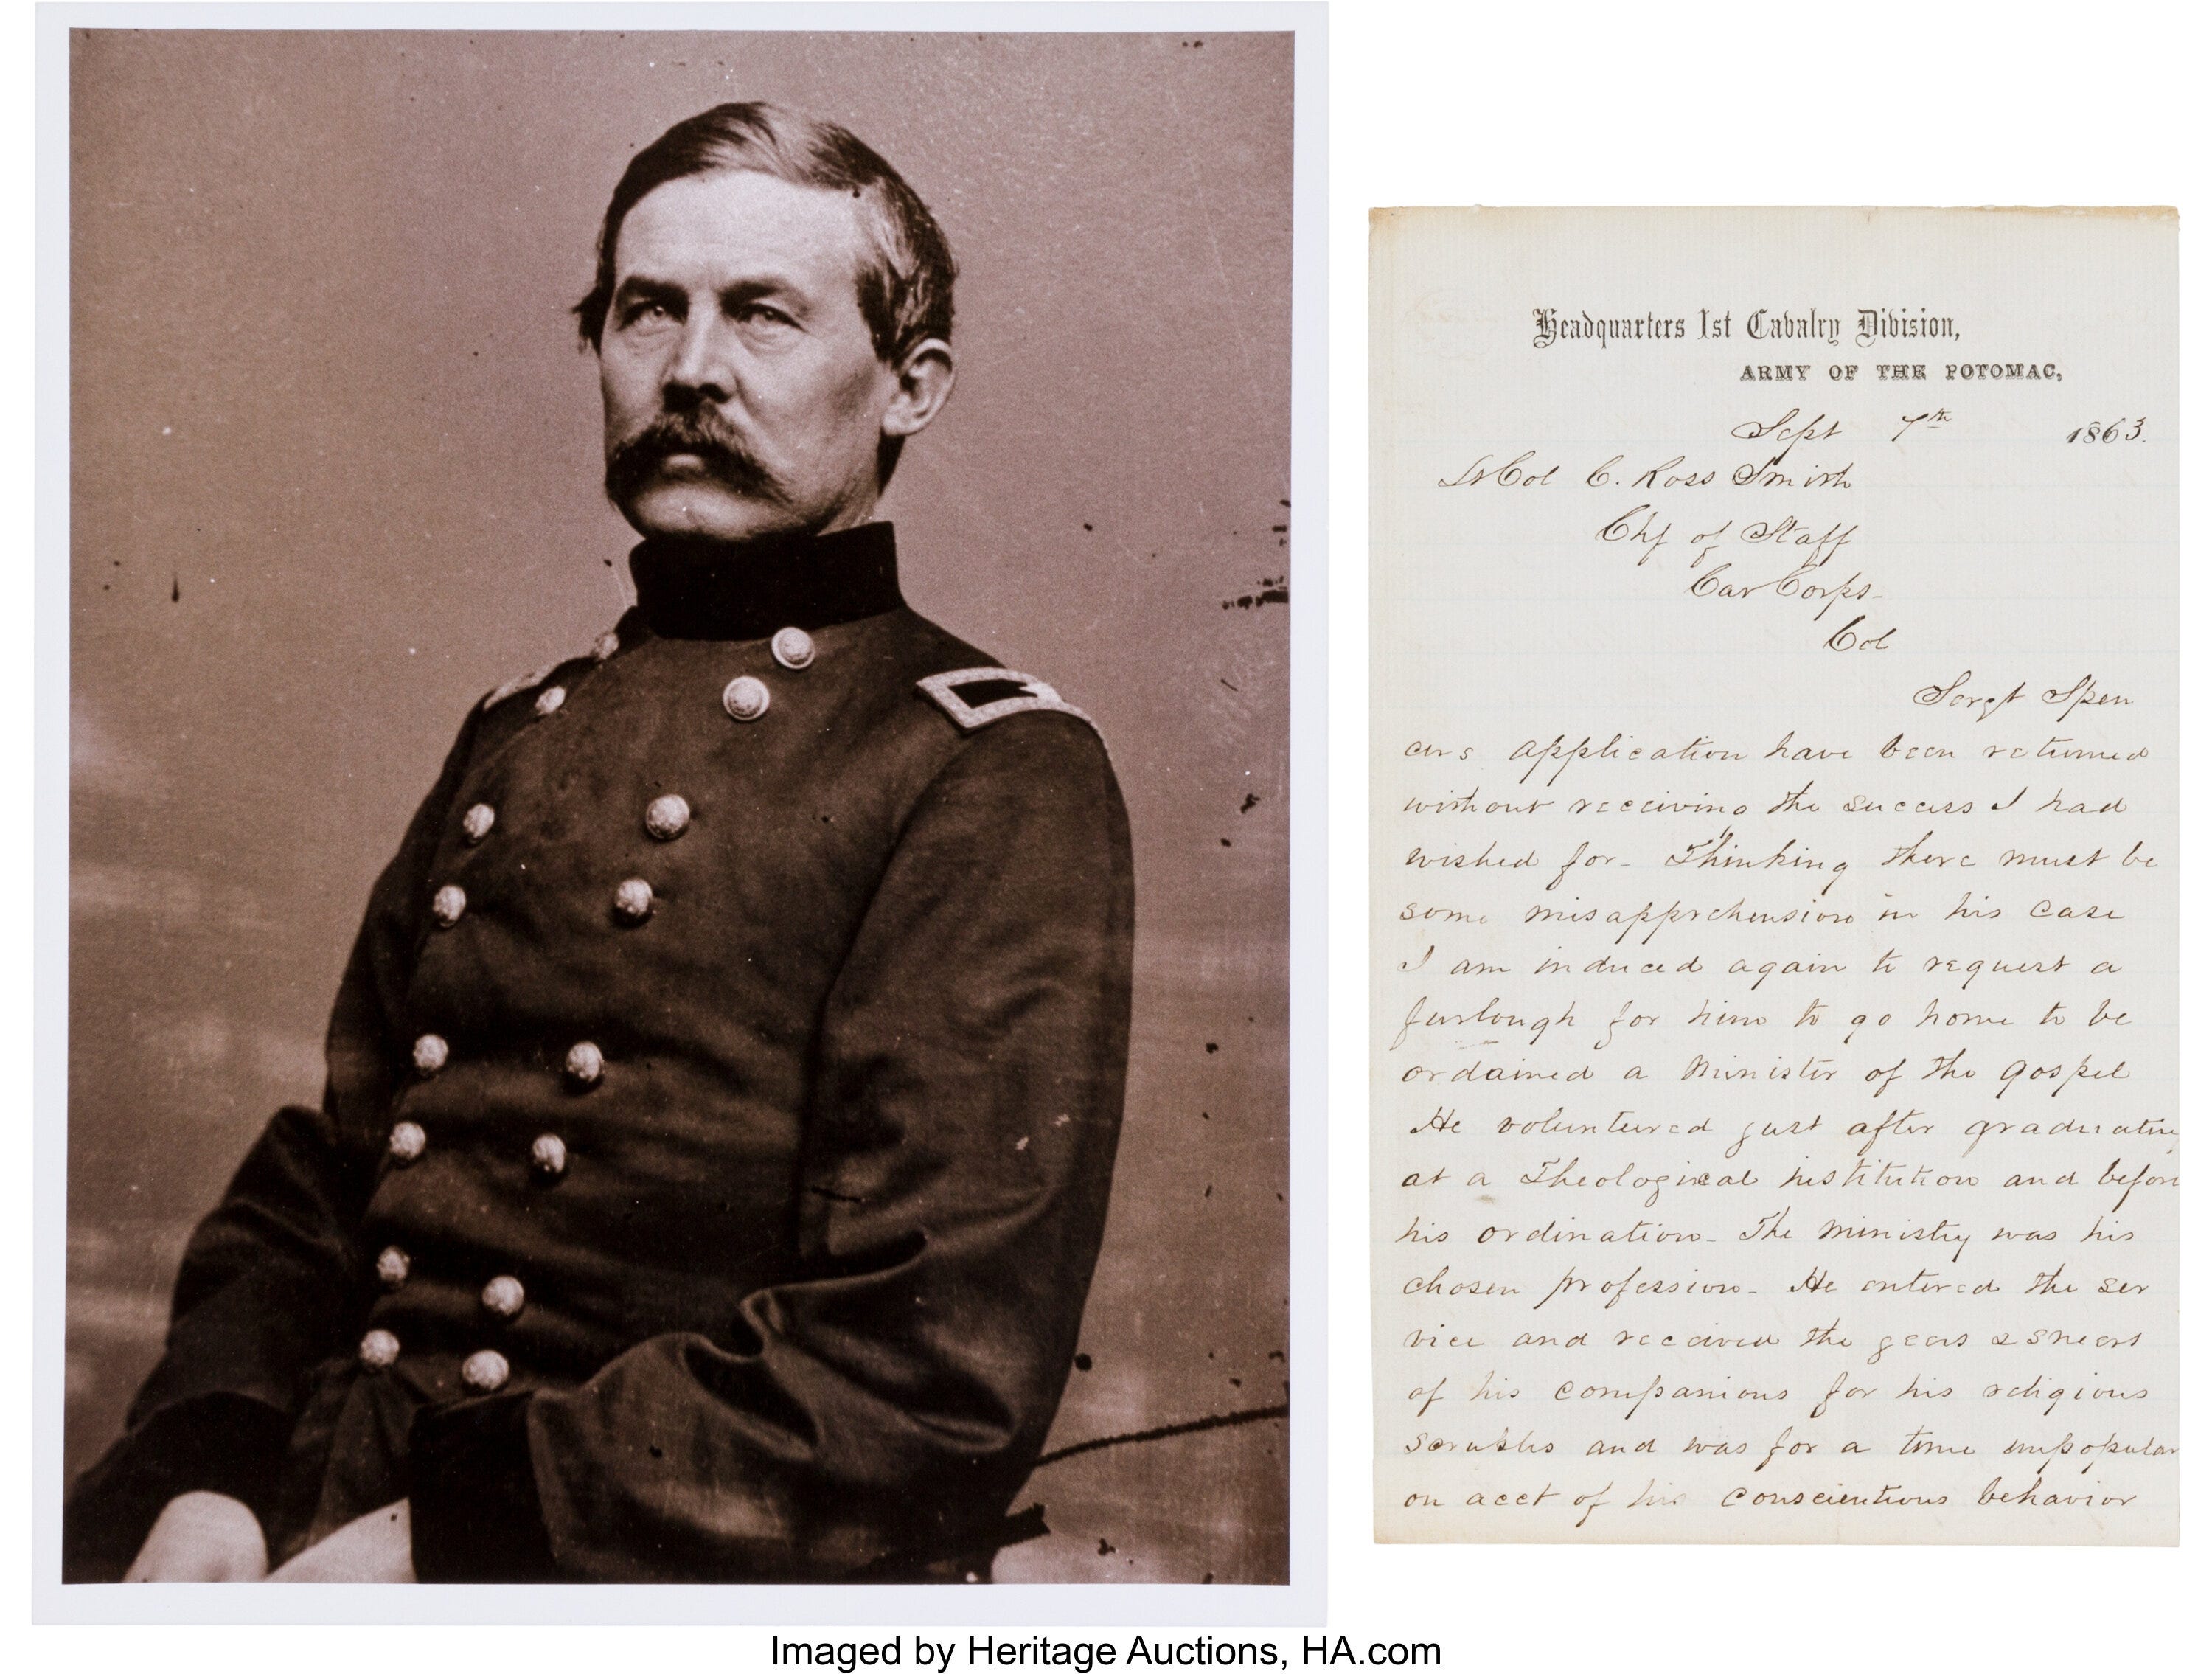 Headquarters 1st Cavalry Division,
ARMY OF THE POTOMAC,
Sept 7th 1863.
Lt Col C. Ross Smith
Chf of Staff
Cav Corps-
Col
Sergt Spen
cers application have been returned
without receiving the success I had
wished for- Thinking there must be
some misapprehension in his case
I am induced again to request a
furlough for him to go home to be
ordained a Minister of the gospel
He volunteered just after graduating
at a Theological institution and before
his ordination- The ministry was his
chosen profession- He entered the ser
vice and received the geers & sneers
of his companions for his religious
scruples and was for a time unpopular
on acct of his conscientious behavior
Imaged by Heritage Auctions, HA.com